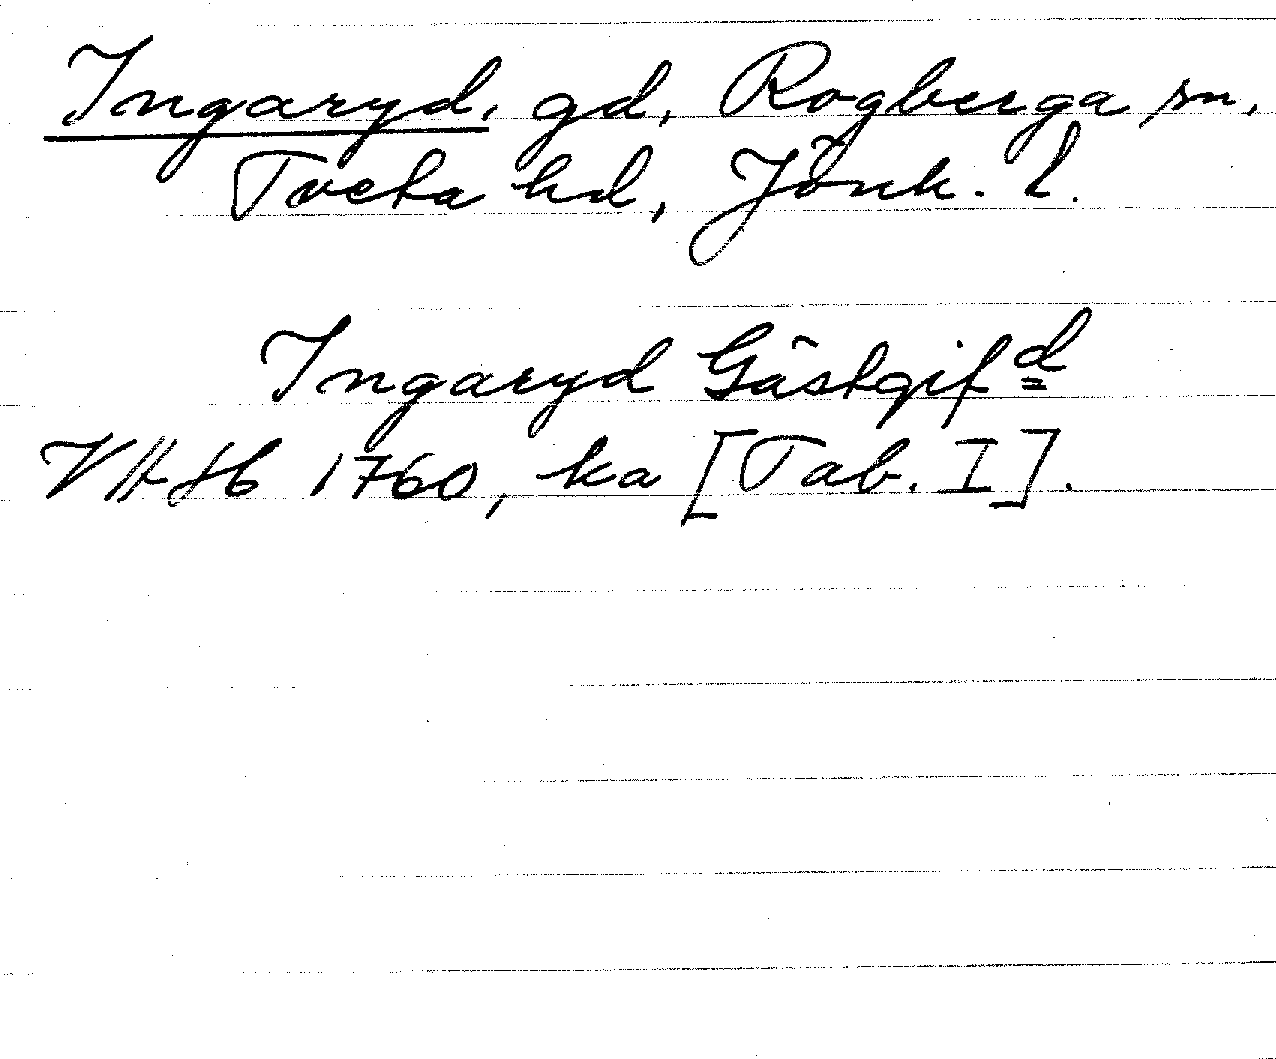 Ingaryd, gd, Rogberga sn,
Tveta hd, Jönk. l.
Ingaryd Gästgif d
1760, ka [Tab. I].